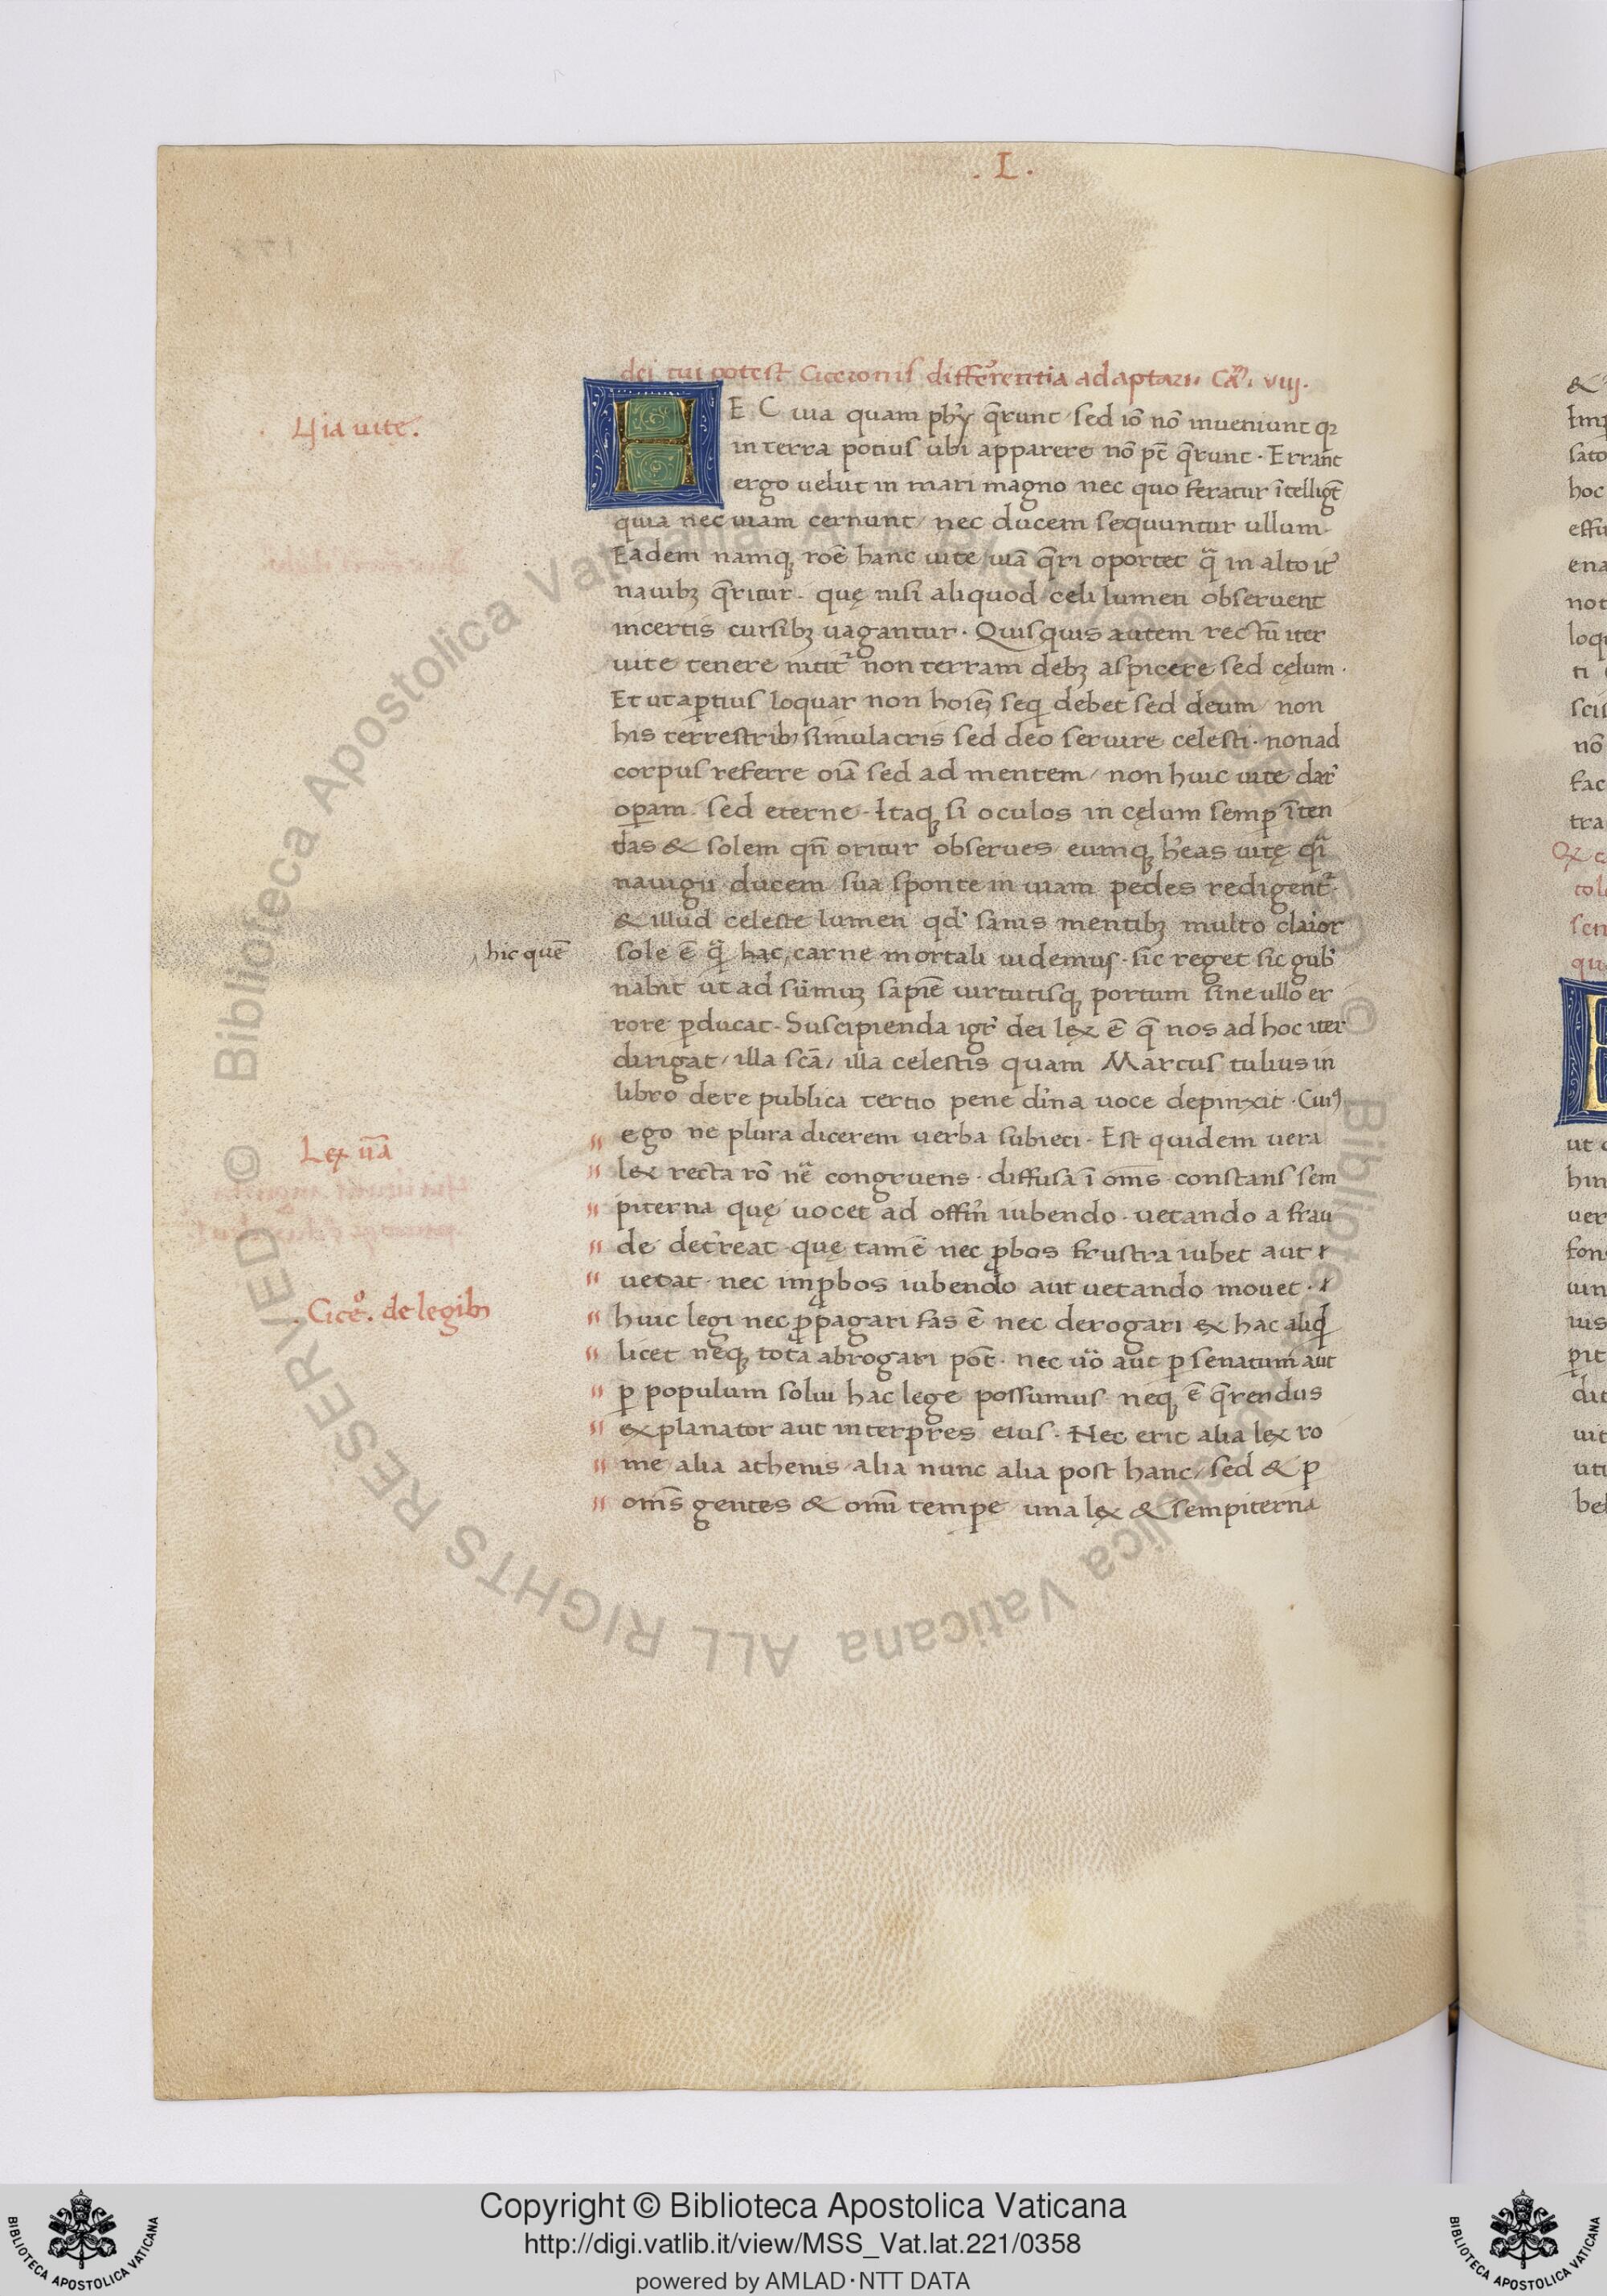 . L .
dei cui potest Ciceronis differentia adaptari. Ca. viij.
HEC uia quam phy q̄runt sed iō nō inueniunt qꝛ
. Ҷia uite.
in terra potius ubi apparere nō pt̄ q̄runt. Errant
ergo uelut in mari magno nec quo feratur ītelligt̄
quia nec uiam cernunt/ nec ducem sequuntur ullum
Eadem namqꝫ roē hanc uite uiā q̄ri oportet q̄ in alto it̓
nauibꝫ q̄ritur. quę nisi aliquod celi lumen obseruent
incertis cursibꝫ uagantur. Quisquis autem rectū iter
uite tenere nitit̓ non terram debꝫ aspicere sed cęlum.
Et ut aꝑtius loquar non hoiēꝫ seq̄ debet sed deum/ non
his terrestribꝫ simulacris sed deo seruire celesti. non ad
corpus referre oiā sed ad mentem/ non huic uite dar̓
oꝑam sed eterne. Itaqꝫ si oculos in cęlum semꝑ īten
das & solem qn̄ oritur obserues eumqꝫ h̓eas uitę q̄i
nauigii ducem sua sponte in uiam pedes redigent̓.
& illud celeste lumen qd̓ sanis mentibꝫ multo claior
hic quē
sole ē q̄ hac carne mortali uidemus. sic reget sic gub̓
nabit ut ad sūmuꝫ sapiē uirtutisqꝫ portum sine ullo er
rore ꝑducat. Suscipienda igr̓ dei lex ē q̄ nos ad hoc iter
dirigat/ illa scā/ illa celestis quam Marcus tulius in
libro de re publica tertio pene dīna uoce depinxit. Cuiꝰ
ego ne plura dicerem uerba subieci. Est quidem uera
Lex ūa
lex recta rō nē congruens. diffusa ī oms̄ constans sem
piterna quę uocet ad offm̄ iubendo. uetando a frau
de det̓reat quę tamē nec ꝓbos frustra iubet aut
uetat nec imꝓbos iubendo aut uetando mouet.
. Cicēo. de legibꝫ
huic legi nec ꝓpagari fas ē nec derogari ex hac aliq̄
licet neqꝫ tota abrogari pōt. nec uo aut ꝑ senatum aut
ꝑ populum solui hac lege possumus neqꝫ ē q̄rendus
explanator aut interpres eius. Nec erit alia lex ro
me alia athenis alia nunc alia post hanc/ sed & ꝑ
oms̄ gentes & omī temꝑe una lex & sempiterna
Copyright © Biblioteca Apostolica Vaticana
http://digi.vatlib.it/view/MSS_Vat.lat.221/0358
powered by AMLAD·NTT DATA